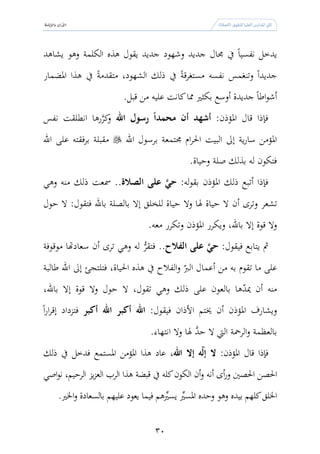 كلي المدارس العليا لتحقيق الصلاة
الأذان والإقامة
يدخل نفسياً في مجال جديد وشهود جديد يقول هذه الكلمة وهو يشاهد
جديداً وتنغمس نفسه مستغرقةً في ذلك الشهود، متقدمةً في هذا المضمار
أشواطاً جديدة أوسع بكثير مما كانت عليه من قبل.
فإذا قال المؤذن: أشهد أن محمداً رسول الله وكرَّرها انطلقت نفس
المؤمن سارية إلى البيت الحرام مجتمعة برسول الله ﷺ مقبلة برفقته على الله
فتكون له بذلك صلة وحياة.
فإذا أتبع ذلك المؤذن بقوله: حيَّ على الصلاة.. سمعت ذلك منه وهي
تشعر وترى أن لا حياة لها ولا حياة للخلق إلا بالصلة بالله فتقول: لا حول
ولا قوة إلا بالله، ويكرر المؤذن وتكرر معه.
ثم يتابع فيقول: حيَّ على الفلاح.. فتقرُّ له وهي ترى أن سعادتها موقوفة
على ما تقوم به من أعمال البرّ والفلاح في هذه الحياة، فتلتجئ إلى الله طالبة
منه أن يمدّها بالعون على ذلك وهي تقول، لا حول ولا قوة إلا بالله،
ويشارف المؤذن أن يختم الأذان فيقول: الله أكبر الله أكبر فتزداد إقراراً
بالعظمة والرحمة التي لا حدَّ لها ولا انتهاء.
فإذا قال المؤذن: لا إلّه إلا الله، عاد هذا المؤمن المستمع فدخل في ذلك
الحصن الحصين ورأى أنه وأن الكون كله في قبضة هذا الرب العزيز الرحيم، نواصي
الخلق كلهم بيده وهو وحده المسيِّر يسيِّرهم فيما يعود عليهم بالسعادة والخير.
٣٠